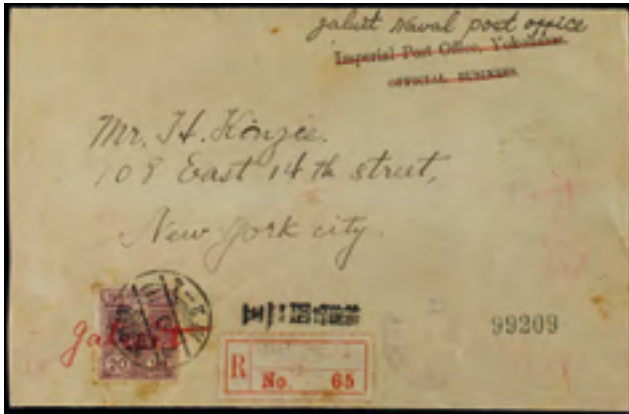 Jaluit Naval post office
Imperial Post Office, Yokohama.
OFFICIAL BUSINESS
Mr. H. Konzee.
108 East 14 th street,
New York city.
Jaluit
20
99209
R
No. 65